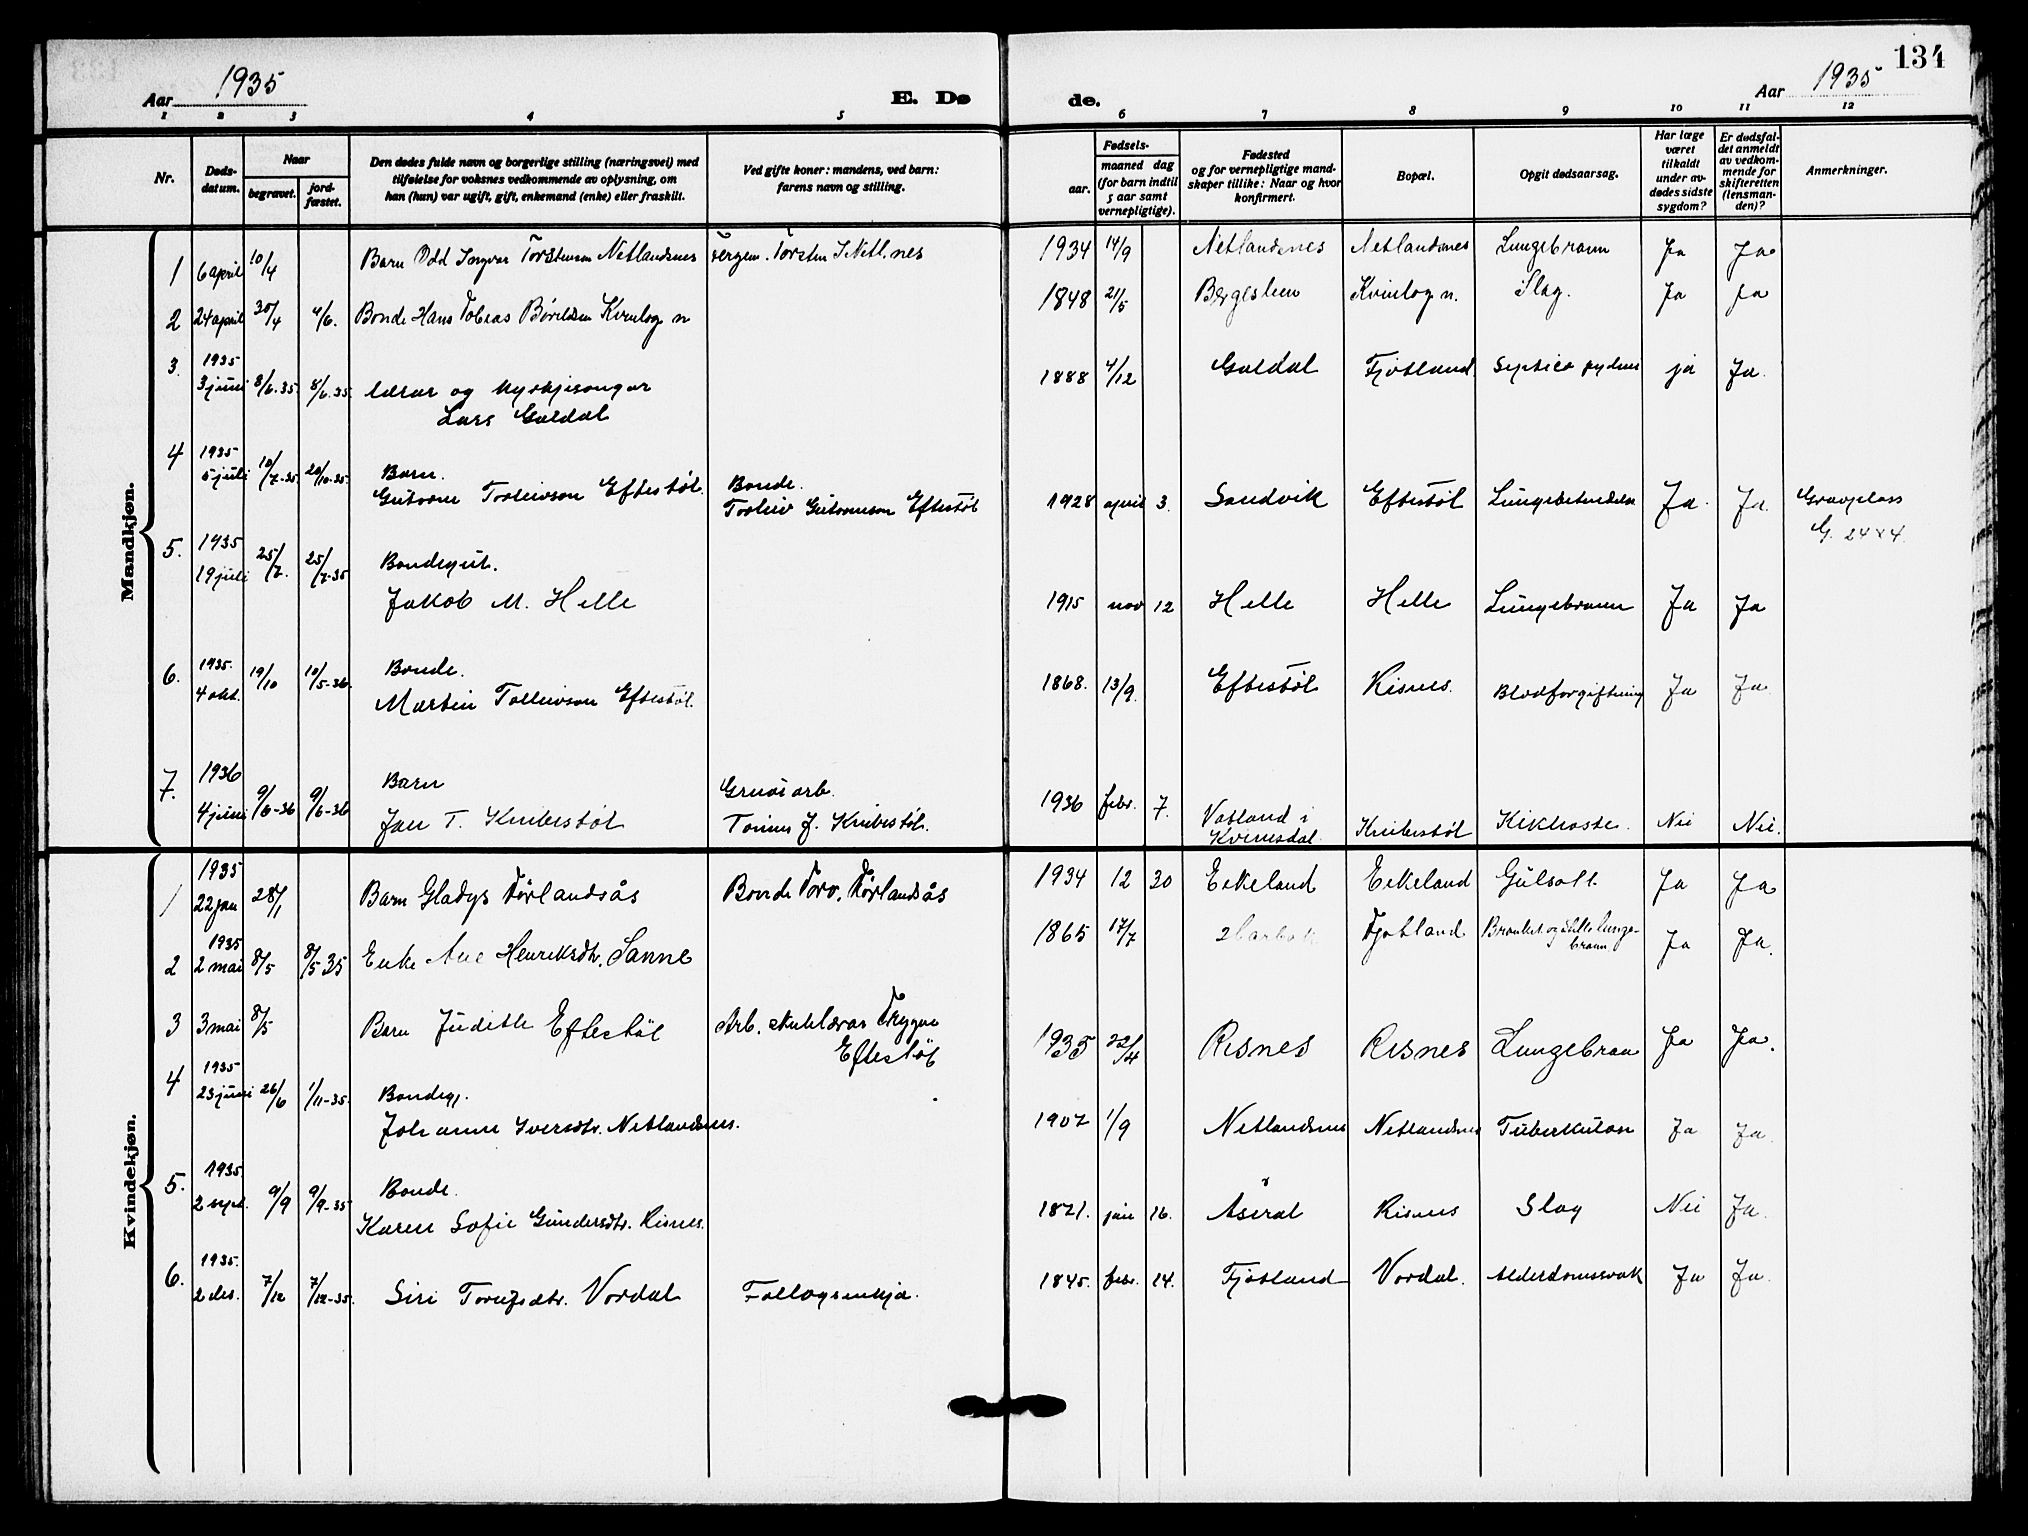 134
Aar 1935
E. Dø
de.
Aar 1935
1 2 3 4 5 6 7 8 9 10 11 12
Nr.
Døds-
datum.
Naar
begravet.
jord-
fæstet.
Den dødes fulde navn og borgerlige stilling (næringsvei) med
tilføielse for voksnes vedkommende av oplysning, om
han (hun) var ugift, gift, enkemand (enke) eller fraskilt.
Ved gifte koner: mandens, ved barn:
farens navn og stilling.
Fødsels-
aar.
maaned dag
(for barn indtil
5 aar samt
vernepligtige).
Fødested
og for vernepligtige mand-
skaper tillike: Naar og hvor
konfirmert.
Bopæl.
Opgit dødsaarsag.
Har læge
været
tilkaldt
under av-
dødes sidste
sygdom?
Er dødsfal-
det anmeldt
av vedkom-
mende for
skifteretten
(lensman-
den)?
Anmerkninger.
Mandkjøn.
1 6 april 10/4 Barn Odd Ingvar Torstensen Netlandsnes Torsten Netl.nes 1934 14/9 Netlandsnes Netlandsnes Lungebraun Ja Ja
2 24 april 30/4 4/6. Bonde Hans Tobias Kvinlog n 1848 21/5 Kvinlog n. Slag. Ja Ja
3. 1935
3 juni 8/6.35. 8/6.35. lærar og kyrkjesongar
Lars Guldal 1888 4/12 Guldal Fjotland. ja Ja.
4 1935
5 juli 10/7-35 20/10-35 Barn.
Gutorm Torleivson Eftestøl. Bonde.
Torleiv Gutormson Eftestøl 1928 april 3. Sandvik Eftestøl Lungebetendelse Ja. Ja. Gravplass
G. 24 x 4.
5. 1935
19 juli 25/7. 25/7-35 Bondegut.
Jakob M. Helle 1915 nov 12 Helle Helle Lungebraun Ja Ja
6. 1935.
4 okt. 19/10 10/5-36. Bonde.
Martin Tolleivson Eftestøl. 1868. 13/9. Eftestøl Risnes. Blodforgiftning Ja Ja.
7. 1936
4 juni 9/6-36 9/6-36 Barn
Jan T. Knibestøl Gruvearb.
J. Knibestøl. 1936 febr. 7. Vatland i
Kvinesdal. Knibestøl Kikhoste. Nei Nei.
Kvindekjøn.
1 1935
22 jan 28/1 Barn Gladys Førlandsås Bonde Førlandsås 1934 12 30 Eikeland Eikeland Gulsott Ja Ja
2 1935
2 mai 8/5 8/5 35 Enke Ane Henriksdtr. Sanne 1865 17/7 Fjotland. Bronkit. og lunge-
braun Ja Ja.
3 3 mai 8/5 Barn Judith Eftestøl Arb. skulelærar Trygve
Eftestøl 1935 22/4 Risnes Risnes Lungebraun Ja Ja.
4 1935
23 juni 26/6 1/11-35. Bondegj.
Johanne Iversdtr. Netlandsnes. 1902 1/9 Netlandsnes Netlandsnes Tuberkulose Ja Ja.
5. 1935.
2 sept. 9/9 9/9-35 Bonde.
Karen Sofie Gundersdtr. Risnes. jan 16. Åseral Risnes Slag Nei Ja.
6. 1935.
2 des. 7/12 7/12-35. Siri Vordal Follogsenkja. 1845. febr. 14. Fjotland Vordal. Alderdomssvak Ja Ja.